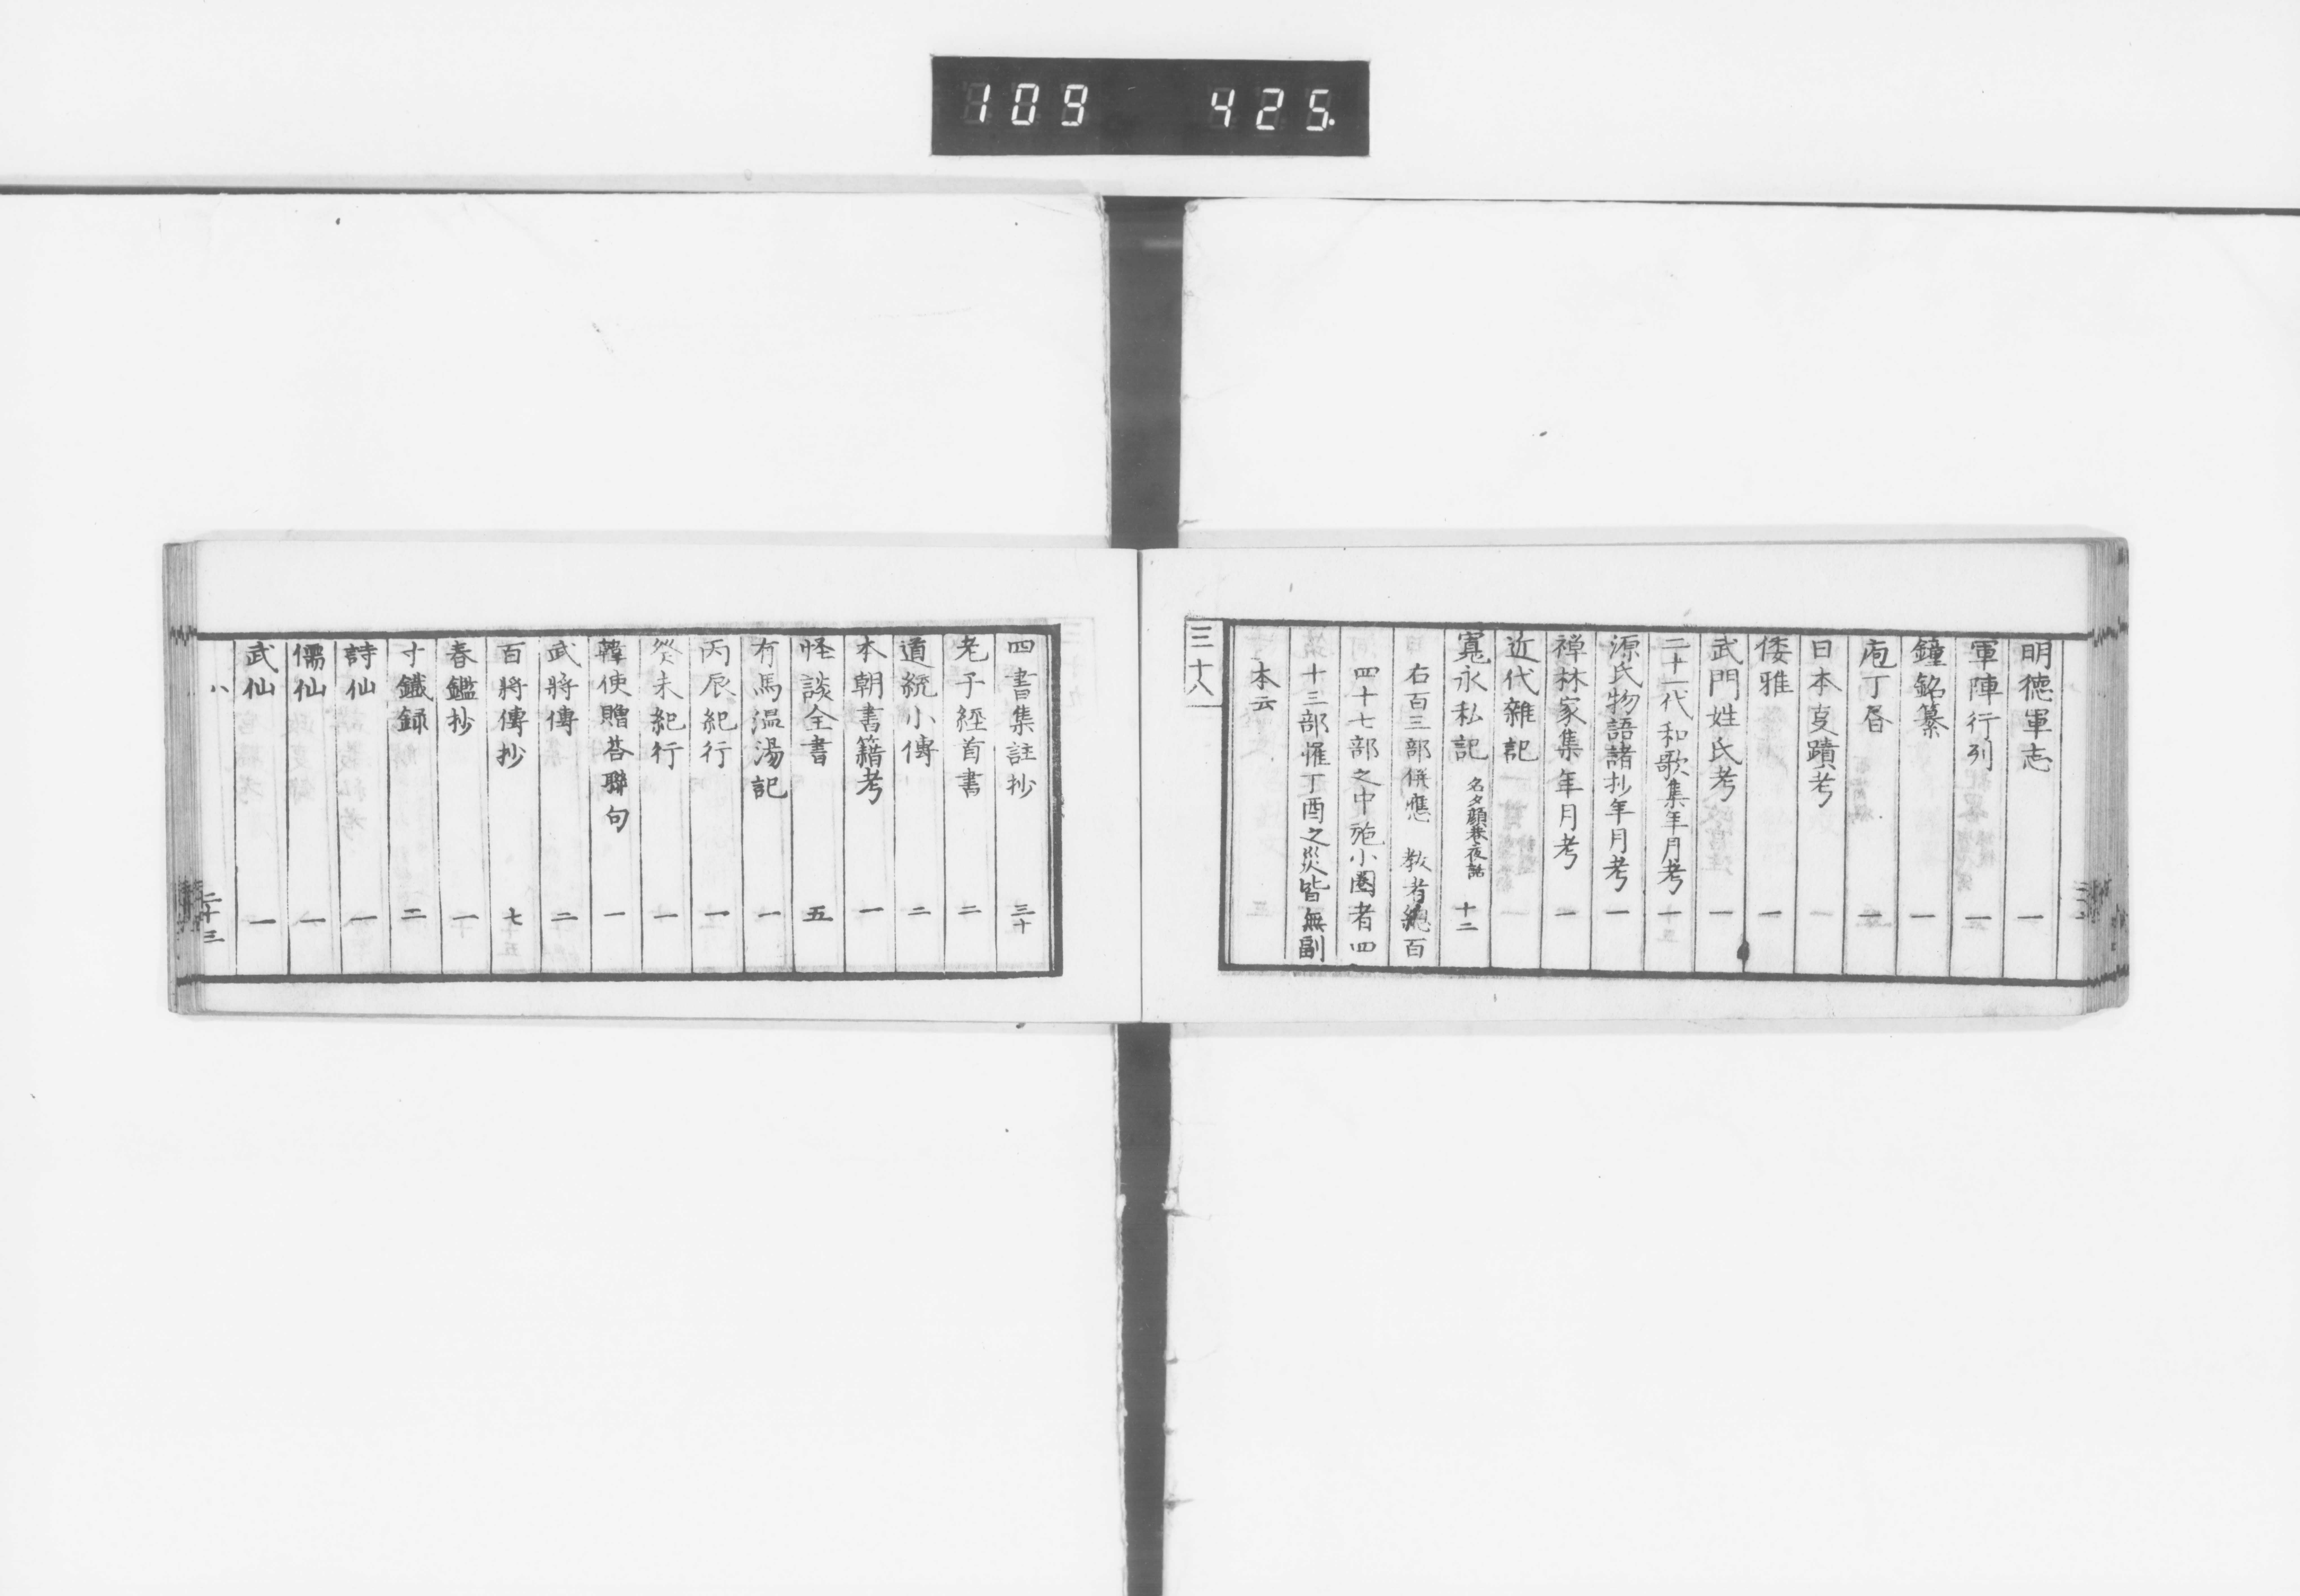 109 425
明德軍志 一
軍陣行列 一
鐘銘纂 一
庖丁昏 一
日本㕝蹟考 一
倭雅 一
武門姓氏考 一
二十一代和歌集年月考 一
源氏物語諸抄年月考 一
禅林家集年月考 一
近代雜記 一
寬永私記 名夕顔巷夜話 十二
右百三部併應 教者總百
四十七部之中施小圏者四
十三部罹丁酉之災皆無副
本云
三十八
四書集註抄 三十
老子經首書 二
道統小傳 二
本朝書籍考 一
怪談全書 五
有馬温湯記 一
丙辰紀行 一
癸未紀行 一
韓使贈荅聯句 一
武將傳 二
百將傳抄 七
春鑑抄 一
寸鐵録 二
詩仙 一
儒仙 一
武仙 一
八 二十三